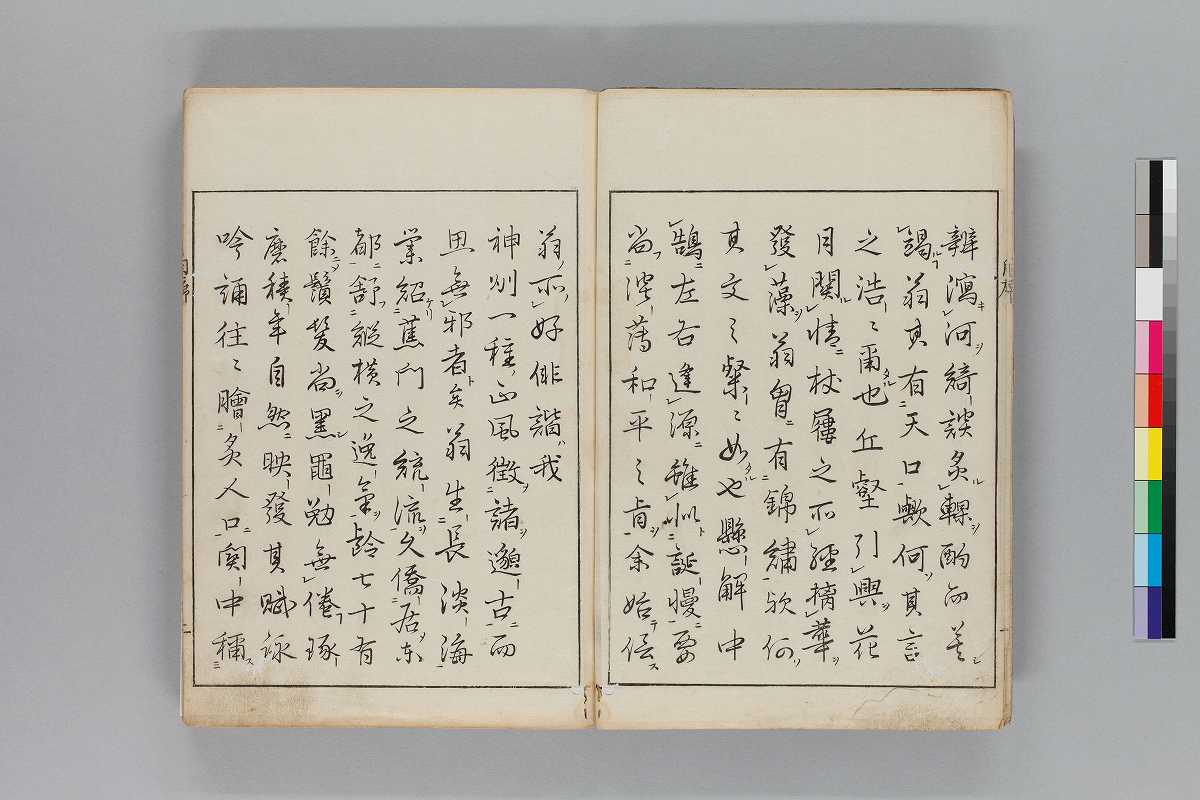 辯瀉河綺談炙輠酌而莫
竭翁其有天口歟何其言
之浩〻爾也丘壑引興花
月関情杖屨之所經摛華
發藻翁胃有錦繡欤何
其文之粲〻如也懸解中
鵠左右逢源雖似誕慢要
尚淫薄和平之旨余始信
翁所好俳諧我
神州一種正風徴諸邈古而
思無邪者矣翁生長淡海
業紹蕉門之統流久僑居东
都舒縱横之逸氣齡七十有
餘鬚髮尚黑黽勉無倦琢
磨積年自然映發其賦詠
吟誦往〻膾炙人口関中稱